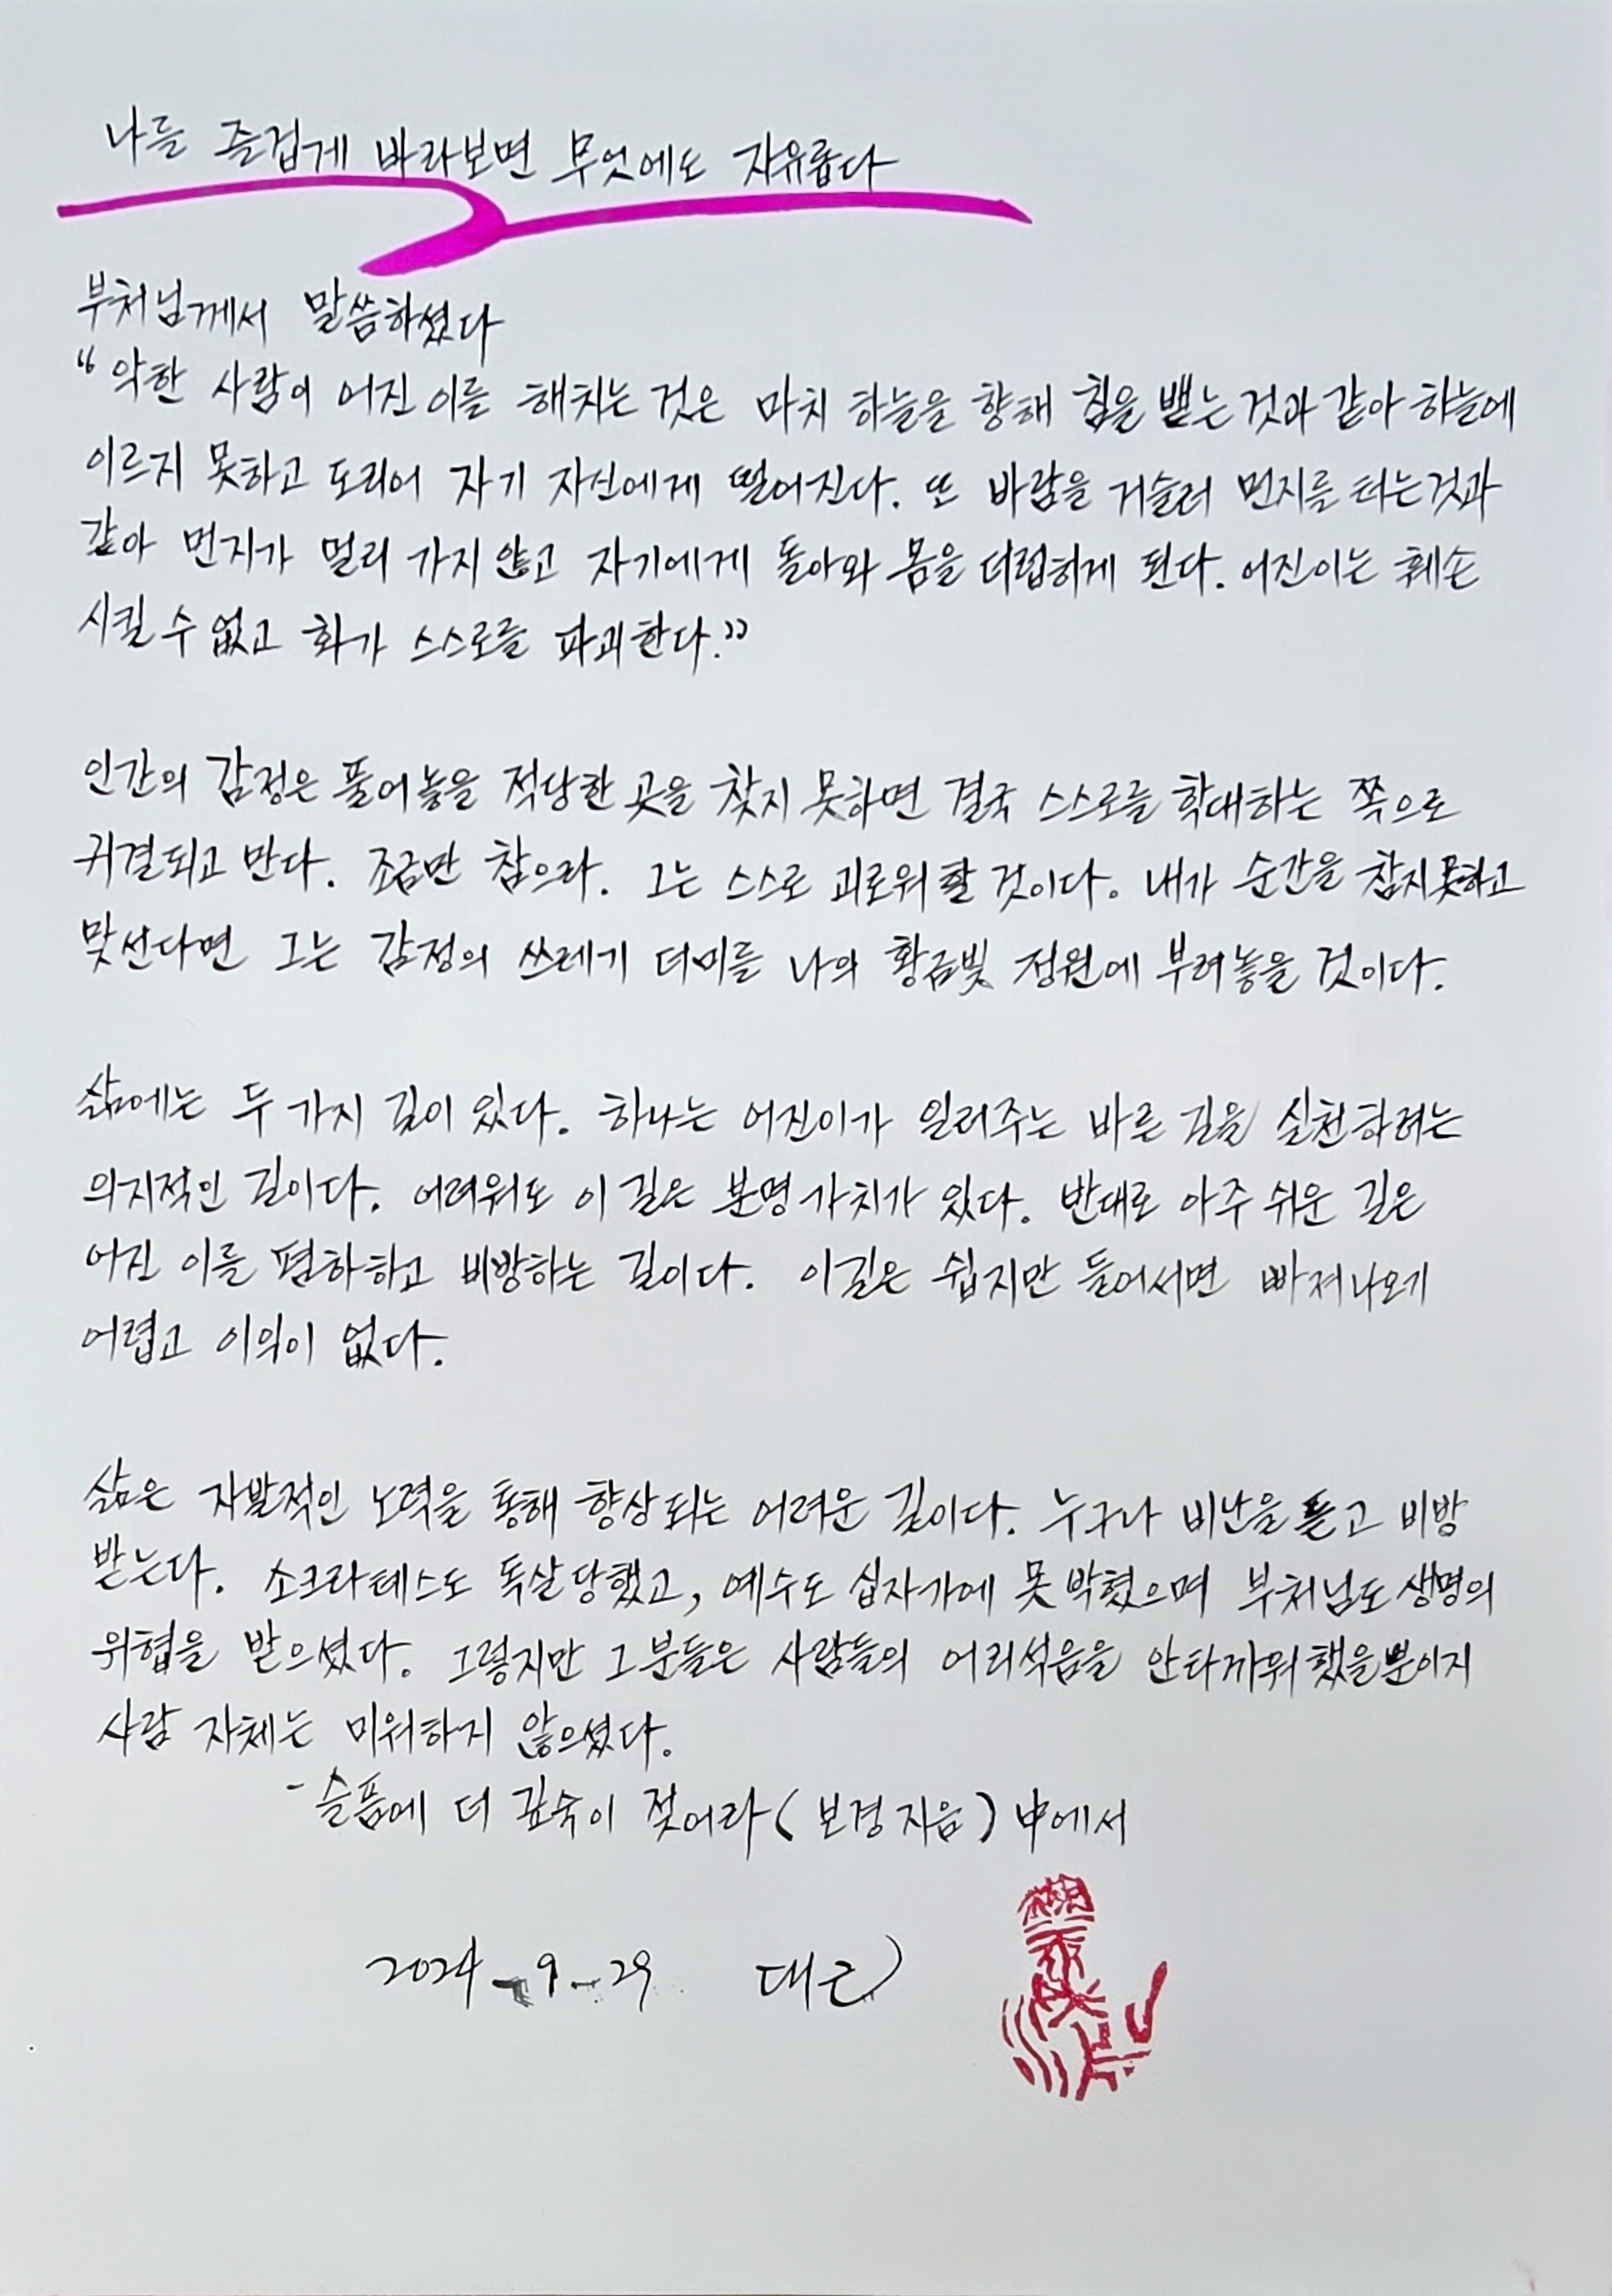 나를 즐겁게 바라보면 무엇에도 자유롭다
부처님께서 말씀하셨다
“악한 사람이 어진 이를 해치는 것은 마치 하늘을 향해 침을 뱉는 것과 같아 하늘에
이르지 못하고 도리어 자기 자신에게 떨어진다. 또 바람을 거슬러 먼지를 터는것과
같아 먼지가 멀리 가지 않고 자기에게 돌아와 몸을 더럽히게 된다. 어진이는 훼손
시킬 수 없고 화가 스스로를 파괴한다.”
인간의 감정은 풀어놓을 적당한 곳을 찾지 못하면 결국 스스로를 학대하는 쪽으로
귀결되고 만다. 조금만 참으라. 그는 스스로 괴로워할 것이다. 내가 순간을 참지못하고
맞선다면 그는 감정의 쓰레기 더미를 나의 황금빛 정원에 부려놓을 것이다.
삶에는 두 가지 길이 있다. 하나는 어진이가 일러주는 바른 길을 실천하려는
의지적인 길이다. 어려워도 이 길은 분명 가치가 있다. 반대로 아주 쉬운 길은
어진 이를 폄하하고 비방하는 길이다. 이길은 쉽지만 들어서면 빠져나오기
어렵고 이익이 없다.
삶은 자발적인 노력을 통해 향상되는 어려운 길이다. 누구나 비난을 듣고 비방
받는다. 소크라테스도 독살당했고, 예수도 십자가에 못 박혔으며 부처님도 생명의
위협을 받으셨다. 그렇지만 그분들은 사람들의 어리석음을 안타까워했을뿐이지
사람 자체는 미워하지 않으셨다.
- 슬픔에 더 깊숙이 젖어라 (보경 지음) 中에서
2024-9-29 대근